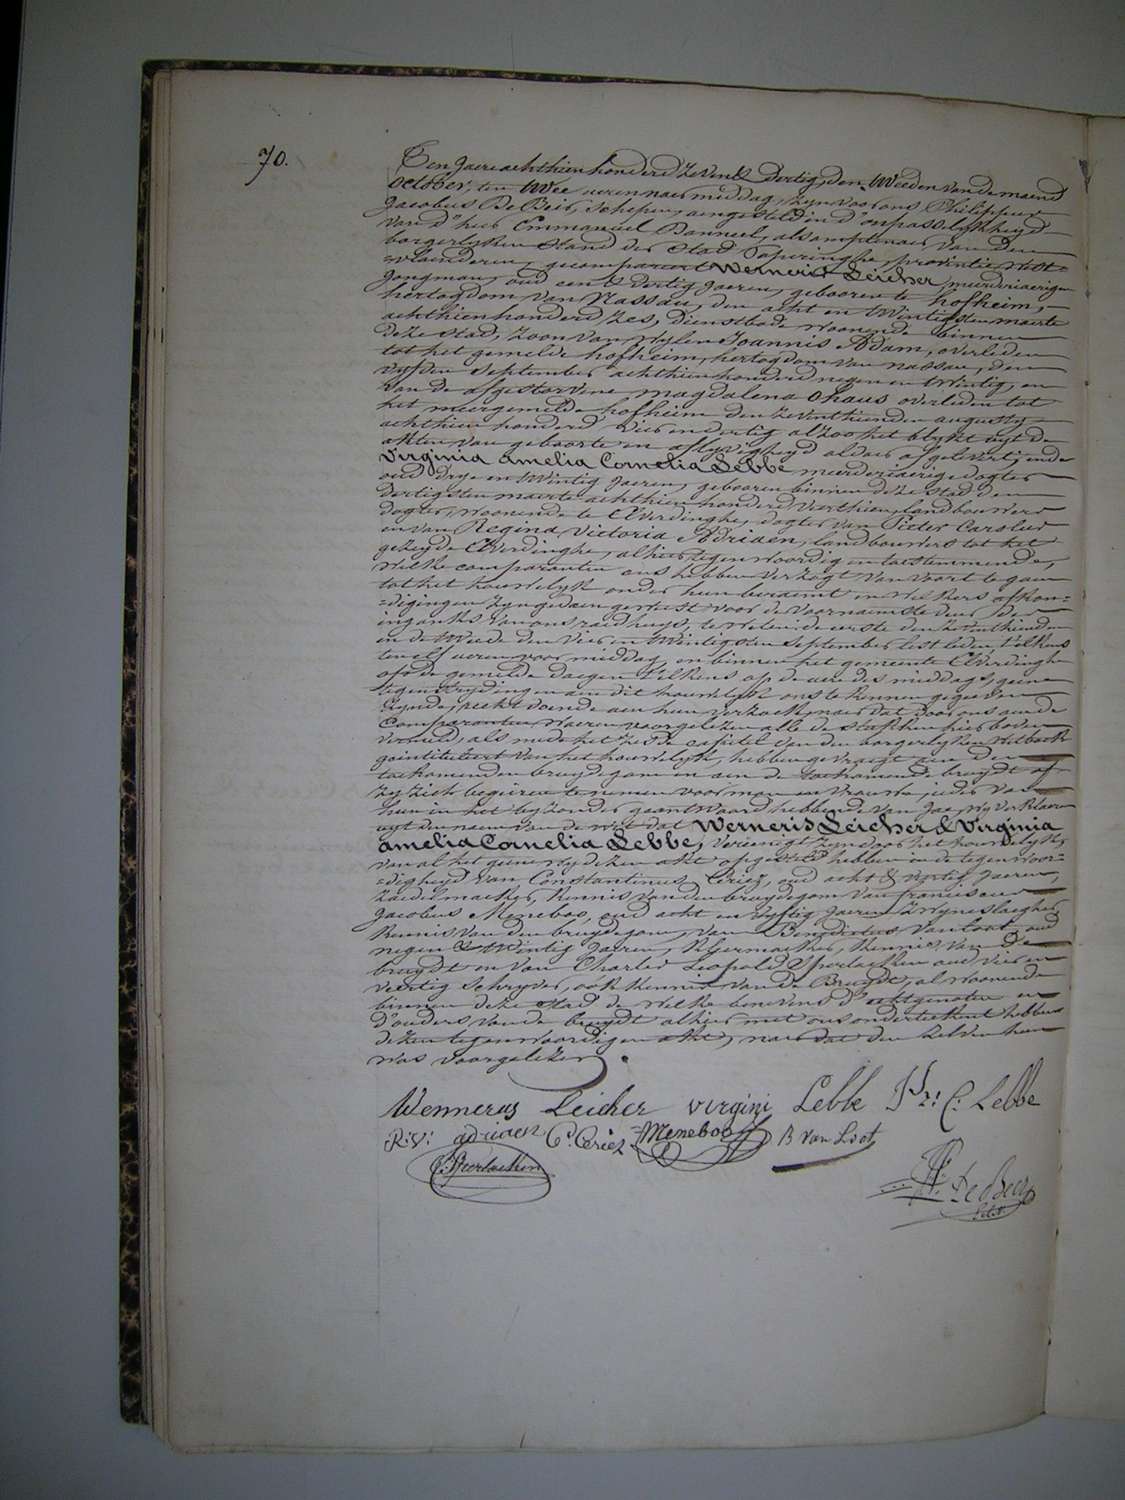 70.
Ten Jaere achthien honderd zeven & dertig, den tweeden van de maend
october, ten twee ueren naer middag, zyn voor ons Philippus
Jacobus De Beir, Schepen, aengesteld in d'onpasselykheyd
van d'heer Emmanuel Banneel, als amptenaer van den
borgerlyken stand der stad Poperinghe, provintie West=
=vlaenderen, gecompareert Werneris Leicher, meerderjaerigen
Jongman, oud een & dertig Jaeren, gebooren te hofheim,
hertogdom van Nassau, den acht en twintigsten maerte
achthien honderd zes, dienstbode woonende binnen
deze stad, zoon van wylen Joannis Adam, overleden
tot het gemelde hofheim, hertogdom van nassau, den
vyfden September achthien honderd negen en twintig, en
van de afgestorvene magdalena ohaus overleden tot
het meergemelde hofheim den zeventhienden augusty
achthien honderd vier en dertig alzoo het blykt uyt de
akten van geboorte en aflyvigheyd aldaer afgelevert; ende
Virginia amelia Cornelia Lebbe meerderjaerige dogter
oud drye en twintig Jaeren, gebooren binnen deze stad den
dertigsten maerte achthien honderd veerthien, landbouwers
dogter, woonende te Elverdinghe, dogter van Pieter Carolus
en van Regina Victoria Adriaen, landbouwers tot het
gezeyde Elverdinghe, alhier tegenwoordig en toestemmende,
welke comparanten ons hebben verzogt van voort te gaen
tot het houwelyk onder hun beraemt en welkers afkon=
=digingen zyn gedaen geweest voor de voornaemste deur der
ingang van ons raedhuys, te weten: de eerste den zeventhienden
en de tweede den vier en twintigsten September lest leden, telkens
ten elf ueren voor middag, en binnen het gemeente Elverdinghe
op de gemelde daegen telkens op de uer des middags, geene
tegenstrydingen aen dit houwelyk ons te kennen gegeeven
zynde, recht doende aen hun verzoek, naer dat door ons aen de
Comparanten waeren voorgelezen alle de stukken hier boven
vermeld, als mede het zesde capitel van den borgerlyken wetboek
geintituleert van het houwelyk, hebben gevraegt aen den
toekomenden bruydegom en aen de toekomende bruydt of
zy zich begeiren te nemen voor man en vrouw, ieder van
hun in het byzonder geantwoord hebbende van Jae, wy verklaeren
uyt den naem van de wet dat Werneris Leicher & Virginia
amelia Cornelia Lebbe, vereenigt zyn door het houwelyk,
van al het geene wy dezen akt opgesteld hebben in de tegenwoor=
=digheyd van Constantinus Ceriez, oud acht & veertig Jaeren,
zaedelmaeker, kennis van den bruydegom van franciscus
Jacobus Meneboo, oud acht en vyftig Jaeren zwyneslagher
kennis van den bruydegom, van Benedictus Vanloot oud
negen & twintig Jaeren, kleermaeker, kennis van de
bruydt en van Charles Leopold Sperlaeken oud vier en
veertig Schryver, ook kennis van de Bruydt, al woonende
binnen deze stad de welke benevens d'echtgenoten en
d'ouders van de bruydt alhier met ons onderteekent hebben
dezen tegenwoordigen akt, naer dat den zelven hun
was voorgelezen.
Wennerus Leicher virgini Lebbe Ptr: C: Lebbe
R:V: adriaen C. Ceriez Meneboo B van Loot
C: Sperlaeken Ph: De Beir
Scht.